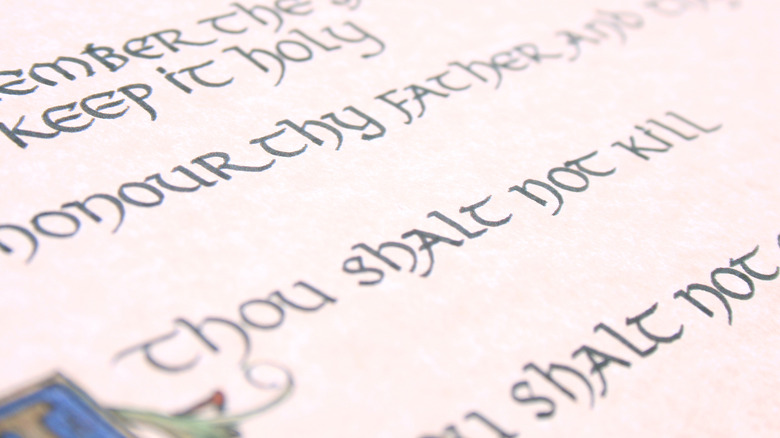 ember the
keep it holy
honour thy father and
Thou shalt not kill
ou shalt not